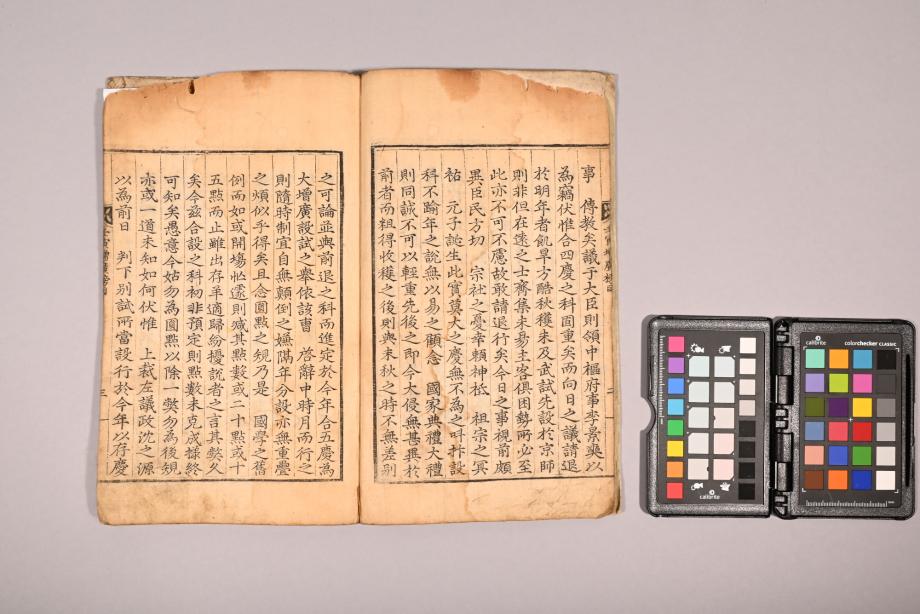 事 傳教矣議于大臣則領中樞府事李景奭以
為竊伏惟合四慶之科固重矣而向日之議請退
於明年者飢旱方酷秋穫未及武試先設於京師
則非但在遠之士齊集未易主客俱困勢所必至
此亦不可不慮故敢請退行矣今日之事視前頗
異臣民方切 宗社之憂幸賴神祗 祖宗之冥
祐 元子誕生此實莫大之慶無不為之呌抃設
科不踰年之說無以易之顧念 國家典禮大禮
則同誠不可以輕重先後之即今大侵無甚異於
前者而粗得收穫之後則與來秋之時不無差別
之可論並與前退之科而進定於今年合五慶為
大增廣設試之舉依該曹 啓辭中時月而行之
則隨時制宜自無顛倒之嫌隔年分設亦無重疊
之煩似乎得矣且念圓點之規乃是 國學之舊
例而如或開場忙遽則减其點數或二十點或十
五點而止雖出存羊適歸紛擾說者之言其弊久
矣今玆合設之科初非預定則點數未克成據終
可知矣愚意今姑勿為圓點以除一弊勿為後規
亦或一道未知如何伏惟 上裁左議政沈之源
以為前日 判下别試所當設行於今年以存慶
二
三
calibrite
calibrite
colorchecker CLASSIC